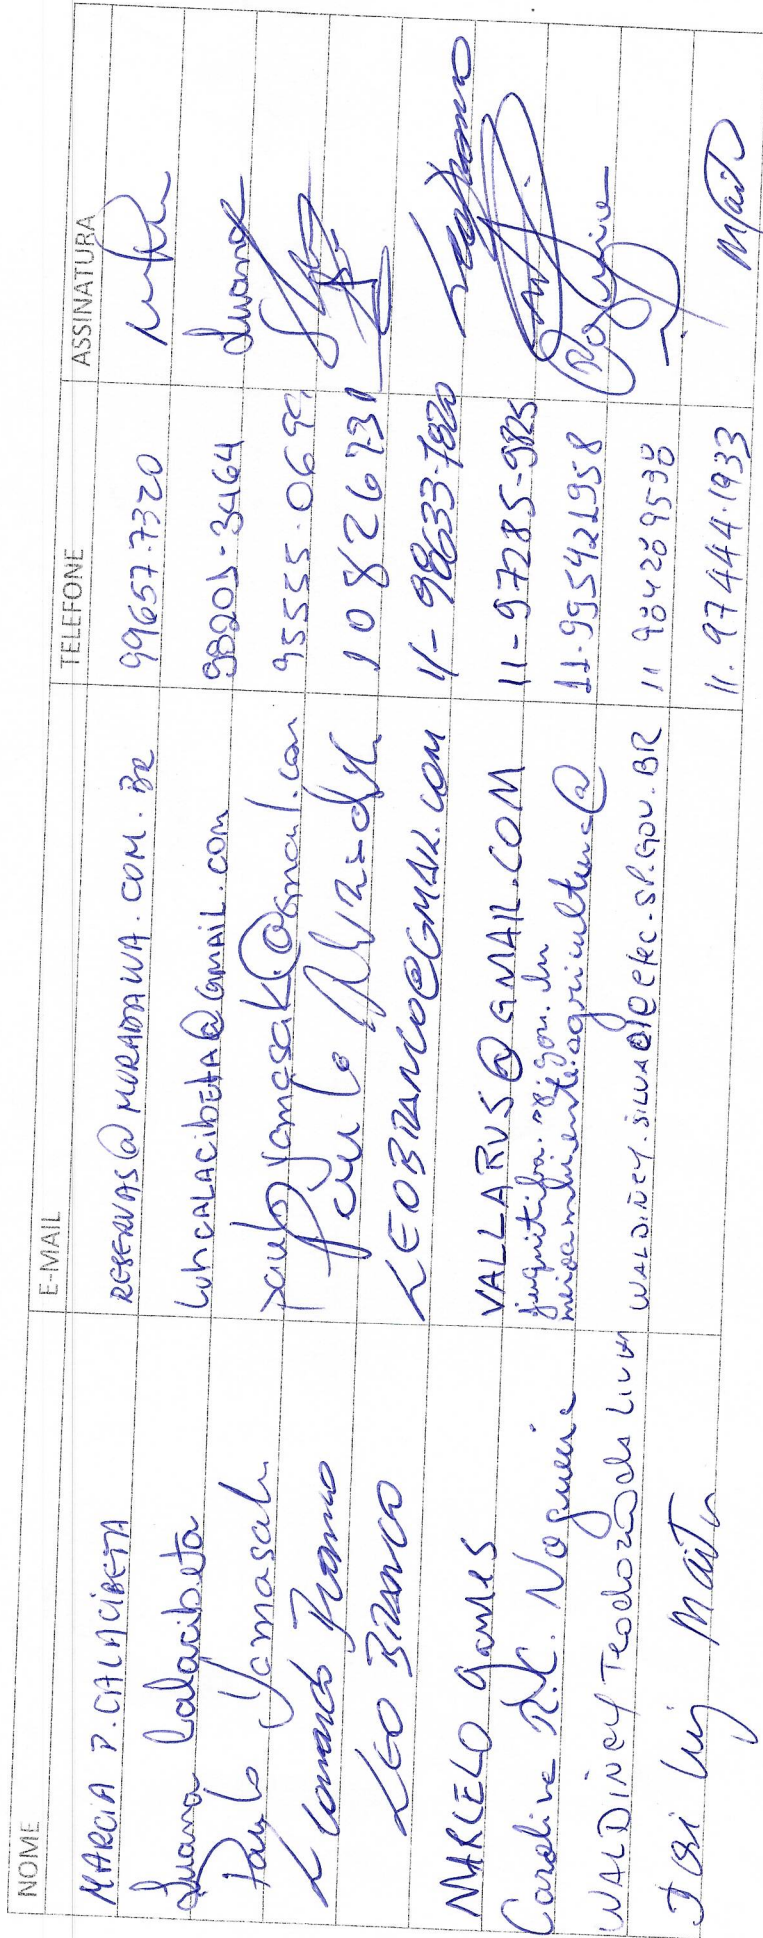 NOME E-MAIL TELEFONE ASSINATURA
MARCIA P. CALACIBETA RESERVAS@MORADAWA.COM.BR 99657-7320
Luana Calacibeta luhcalacibeta@gmail.com 98201-3464 Luana
Paulo Yamasak pauloyamasak@gmail.com 95555-069
Leonardo Branco Paulo 10826731
LEO BRANCO LEOBRANCO@GMAIL.COM 11-98633-7820 Leo Branco
MARCELO Gomes VALLARUS@GMAIL.COM 11-97285-9825
Caroline R.C. Nogueira meioambienteagricultura@ juquitiba.sp.gov.br 11-995421958 Nogueira
WALDINEY Teodoro da Silva WALDINEY.SILVA@ctec.sp.gov.br 11 984289598
José Luiz Maito 11.97444.1933 Maito